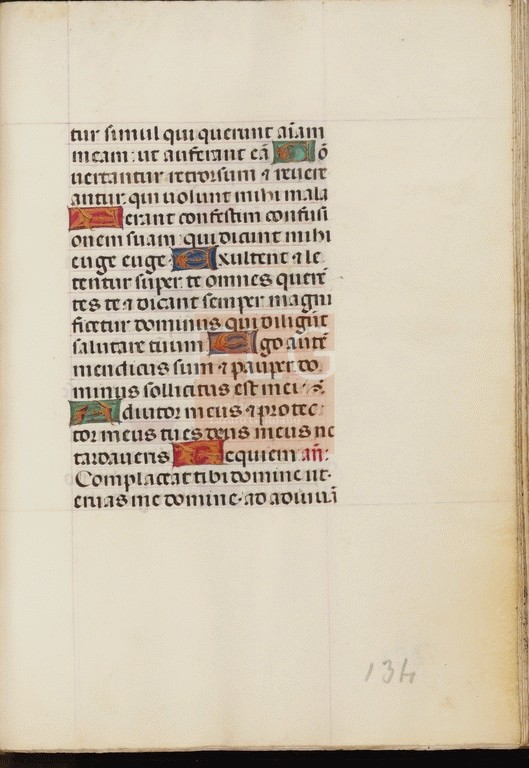 tur simul qui querunt aīam
meam: ut auferant eā C ō
uertantur retrorsum ⁊ reuere
antur, qui uolunt mihi mala
F erant confestim confusi
onem suam: qui dicunt mihi
euge euge: E xultent ⁊ le
tentur super te omnes querē
tes te ⁊ dicant semper magni
ficetur dominus qui diligūt
salutare tuum E go autē
mendicus sum ⁊ pauper do
minus sollicitus est mei
A diutor meus ⁊ protec
tor meus tu es deus meus ne
tardaueris R equiem an̄:
Complaceat tibi domine ut
erias me domine ad adiuuā
134